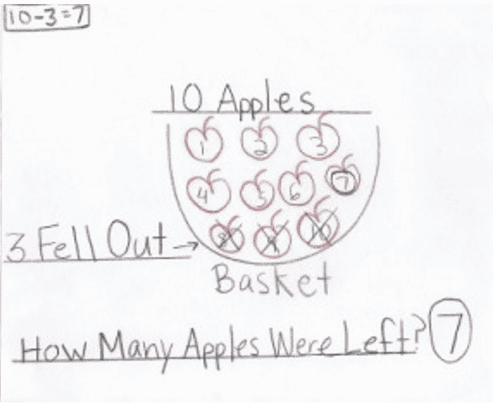 10-3=7
10 Apples
1 2 3
4 5 6 7
8 9 10
3 Fell Out →
Basket
How Many Apples Were Left? 7